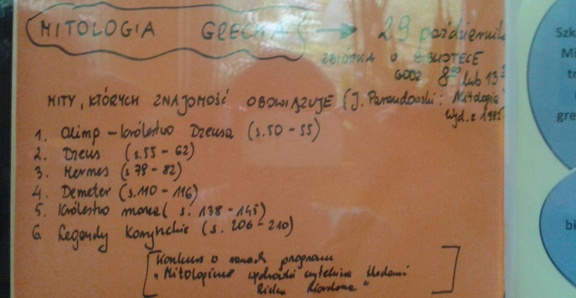 MITOLOGIA GRECKA → 29 październik
ZBIÓRKA W BIBLIOTECE
GODZ 8⁰⁰ lub 13
MITY, KTÓRYCH ZNAJOMOŚĆ OBOWIĄZUJE (J. Parandowski: Mitologia
wyd. z 1985
1. Olimp – królestwo Dzeusa (s. 50 – 55)
2. Dzeus (s. 55 – 62)
3. Hermes (s 79 – 82)
4. Demeter (s. 110 – 116)
5. Królestwo morza (s. 138 – 145)
6 Legendy Korynckie (s. 206 – 210)
[Konkurs w ramach programu
"Mitologiczne wędrówki czytelnicze śladami
Ricka Riordana"]
Szk
Mi
tr
gre
bi